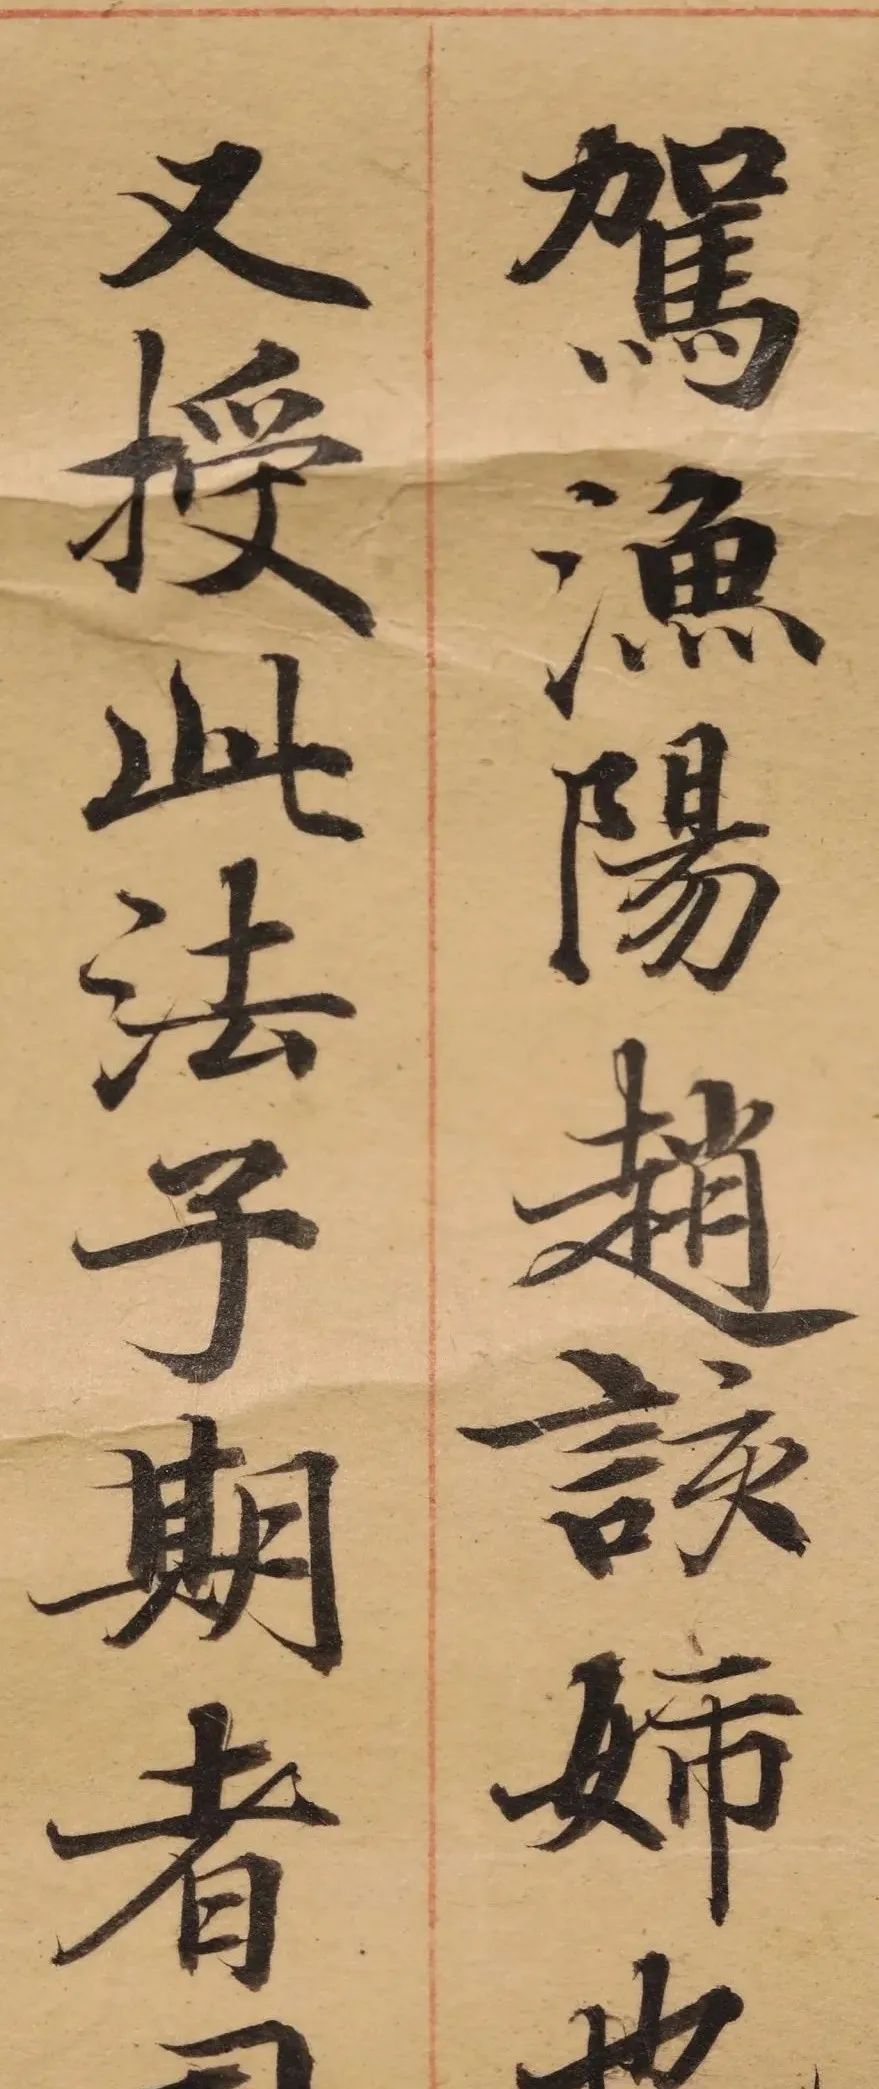 駕漁陽趙該姊也
又授此法子期者司